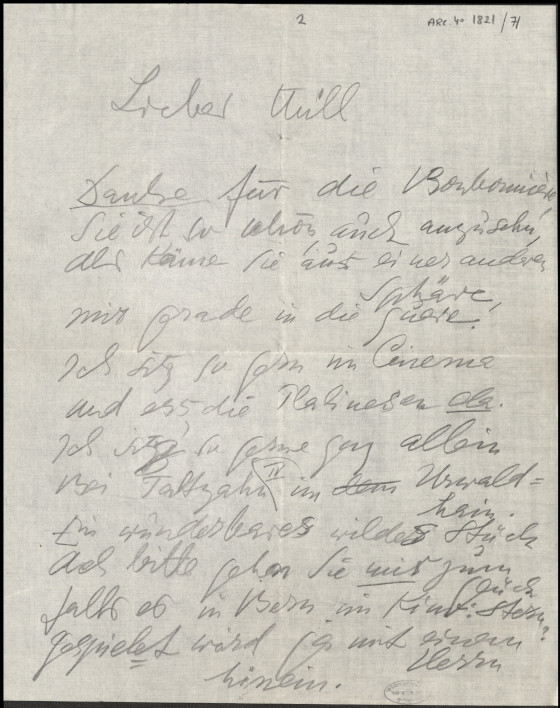 2
ARC. 4o 1821/71
Lieber Hüll
Danke für die Bonbonnière,
Sie ist so schön auch anzusehn,
als käme sie aus einer anderen
Sphäre,
mir grade in die Quere.
Ich sitz so gern im Cinema
und ess die Pralinesen da.
Ich sitz so gerne ganz allein
Bei Tattzahn IV im dem Urwald=
hain.
Ein wunderbares wildes Stück
Ach bitte gehen Sie mir zum
Glück
falls es in Bern im Kino: Stern
gespielet wird ja mit einem
Herrn?
hinein.